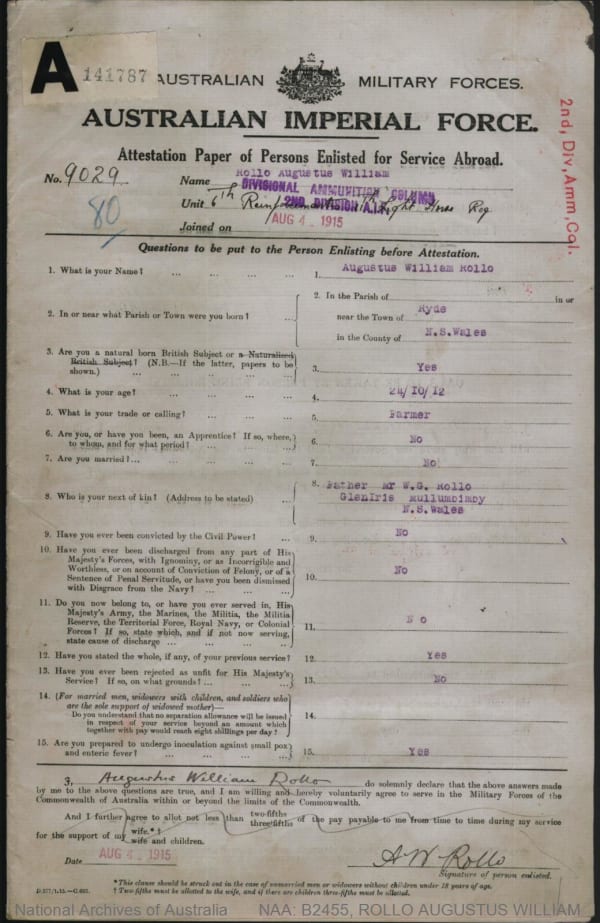 A 141787 AUSTRALIAN MILITARY FORCES.
AUSTRALIAN IMPERIAL FORCE.
Attestation Paper of Persons Enlisted for Service Abroad.
2nd, Div, Amm, Col.
No. 9029 Name Rollo Augustus William
DIVISIONAL AMMUNITION COLUMN
80 Unit 6th Reinforcements Light Horse Reg
2ND DIVISION A.I.F.
Joined on AUG 4 1915
Questions to be put to the Person Enlisting before Attestation.
1. What is your Name? ... ... ... ... 1. Augustus William Rollo
2. In or near what Parish or Town were you born? ... 2. In the Parish of in or
near the Town of Ryde
in the County of N.S.Wales
3. Are you a natural born British Subject or a Naturalised
British Subject? (N.B.—If the latter, papers to be
shown.) ... ... ... ... 3. Yes
4. What is your age? ... ... ... ... 4. 24/10/12
5. What is your trade or calling? ... ... ... 5. Farmer
6. Are you, or have you been, an Apprentice? If so, where,
to whom, and for what period? ... ... ... 6. No
7. Are you married?... ... ... ... ... 7. No
8. Who is your next of kin? (Address to be stated) ... 8. Father Mr W.G. Rollo
GlenIris Mullumbimby
N.S.Wales
9. Have you ever been convicted by the Civil Power? ... 9. No
10. Have you ever been discharged from any part of His
Majesty's Forces, with Ignominy, or as Incorrigible and
Worthless, or on account of Conviction of Felony, or of a
Sentence of Penal Servitude, or have you been dismissed
with Disgrace from the Navy? ... ... ... 10. No
11. Do you now belong to, or have you ever served in, His
Majesty's Army, the Marines, the Militia, the Militia
Reserve, the Territorial Force, Royal Navy, or Colonial
Forces? If so, state which, and if not now serving,
state cause of discharge ... ... ... ... 11. N o
12. Have you stated the whole, if any, of your previous service? 12. Yes
13. Have you ever been rejected as unfit for His Majesty's
Service? If so, on what grounds? ... ... ... 13. No
14. (For married men, widowers with children, and soldiers who
are the sole support of widowed mother)—
Do you understand that no separation allowance will be issued
in respect of your service beyond an amount which
together with pay would reach eight shillings per day? 14.
15. Are you prepared to undergo inoculation against small pox
and enteric fever? ... ... ... ... 15. Yes
I, Augustus William Rollo do solemnly declare that the above answers made
by me to the above questions are true, and I am willing and hereby voluntarily agree to serve in the Military Forces of the
Commonwealth of Australia within or beyond the limits of the Commonwealth.
And I further agree to allot not less than two-fifths three-fifths of the pay payable to me from time to time during my service
for the support of my wife.*†
wife and children.
Date AUG 4 1915 A W Rollo
Signature of person enlisted.
D.277/1.15.—C.605. *This clause should be struck out in the case of unmarried men or widowers without children under 18 years of age.
† Two-fifths must be allotted to the wife, and if there are children three-fifths must be allotted.
National Archives of Australia NAA: B2455, ROLLO AUGUSTUS WILLIAM